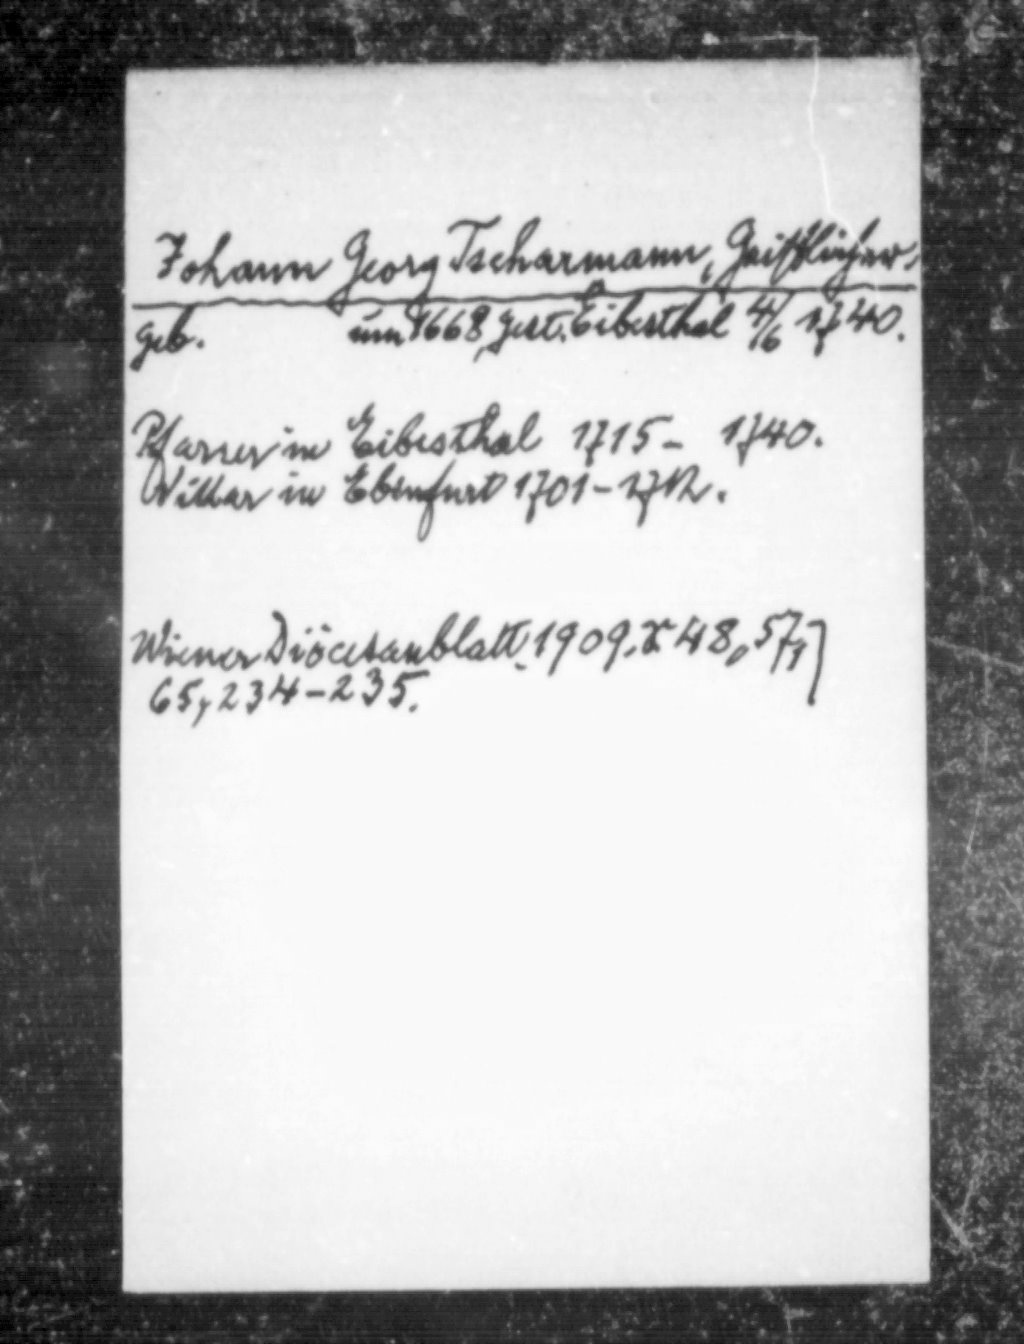 Johann Georg Tscharmann, Geistlicher,
geb. um 1668, gest. Eibesthal 4/6 1740.
Pfarrer in Eibesthal 1715 - 1740.
Vikar in Ebenfurt 1701 - 1712.
Wiener Diöcesanblatt 1909, 48, 57,
65, 234-235.